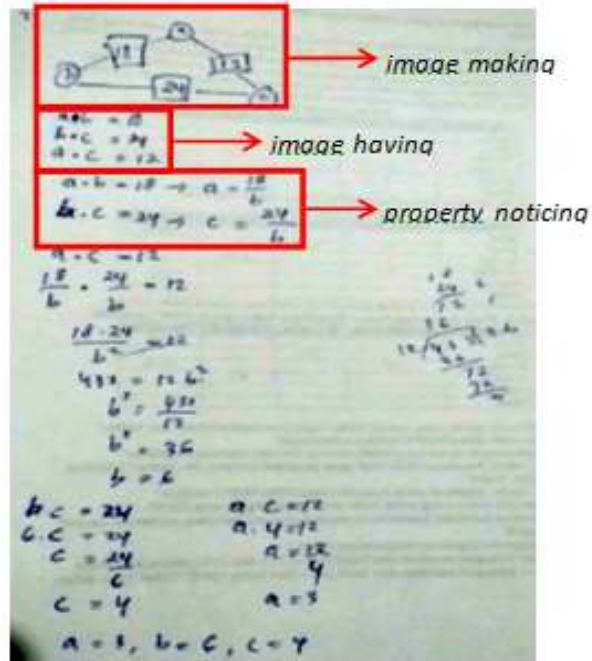 18
12
24
image making
b . c = 24
a . c = 12
image having
a . b = 18 → a = 18/b
b . c = 24 → c = 24/b
property noticing
a . c = 12
18/b . 24/b = 12
18 . 24/b²
432 = 12 b²
b² = 432/12
b² = 36
b = 6
b c = 24
6 . c = 24
c = 24/6
c = 4
a . c = 12
a . 4 = 12
a = 12/4
a = 3
a = 3, b = 6, c = 4